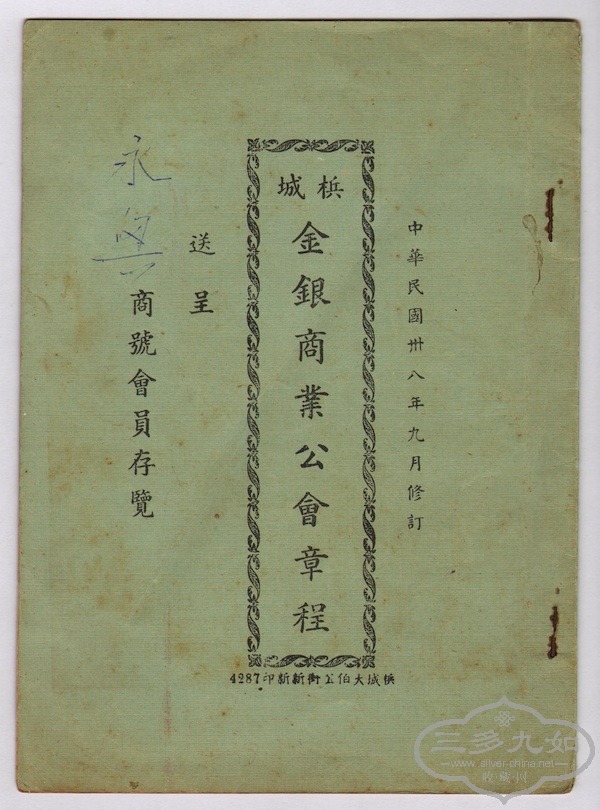 中華民國卅八年九月修訂
檳城
金銀商業公會章程
送呈
永興
商號會員存覽
檳城大伯公街新新印4287
三多九如
www.silver-china.net
收藏网